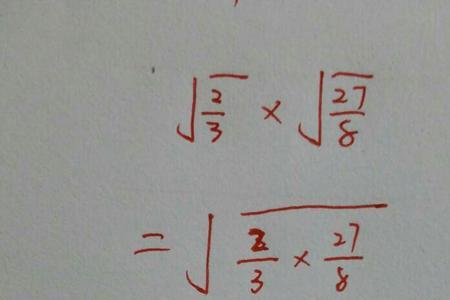 √(2/3) × √(27/8)
= √(2/3 × 27/8)